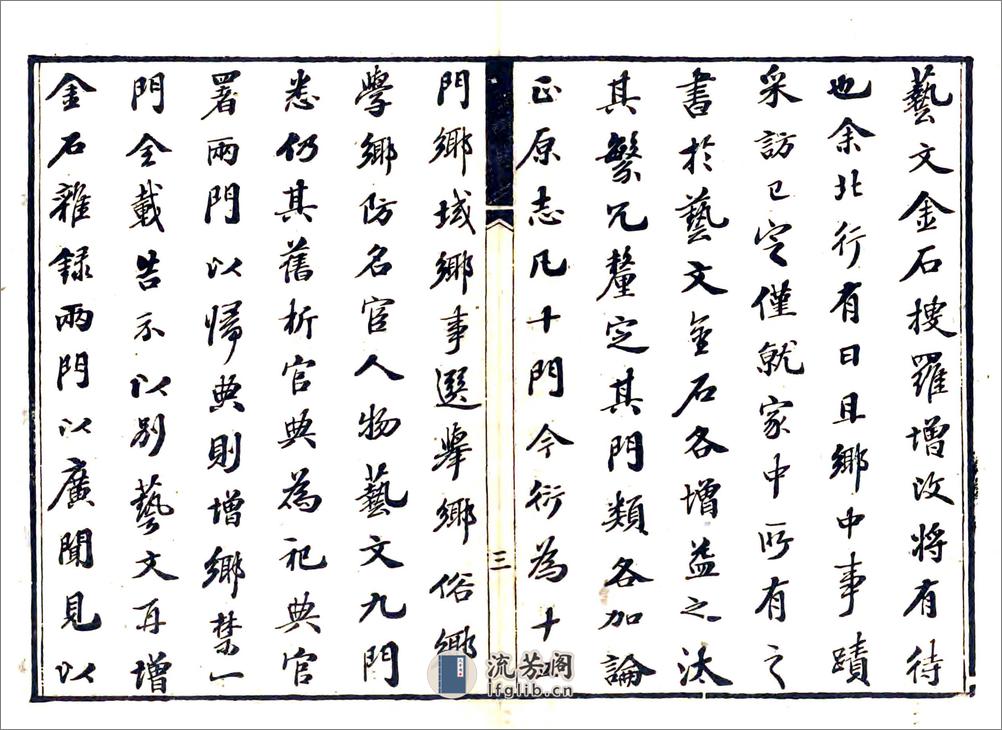 藝文金石搜羅增改將有待
也余北行有日且鄉中事蹟
采訪已定僅就家中所有之
書於藝文金石各增益之汰
其繁冗釐定其門類各加論
正原志凡十門今衍為十
三
門鄉域鄉事選舉鄉俗鄉
學鄉防名宦人物藝文九門
悉仍其舊析官典為祀典官
署兩門以歸典則增鄉禁一
門全載告示以別藝文再增
金石雜録兩門以廣聞見以
流芳阁
lfglib.cn